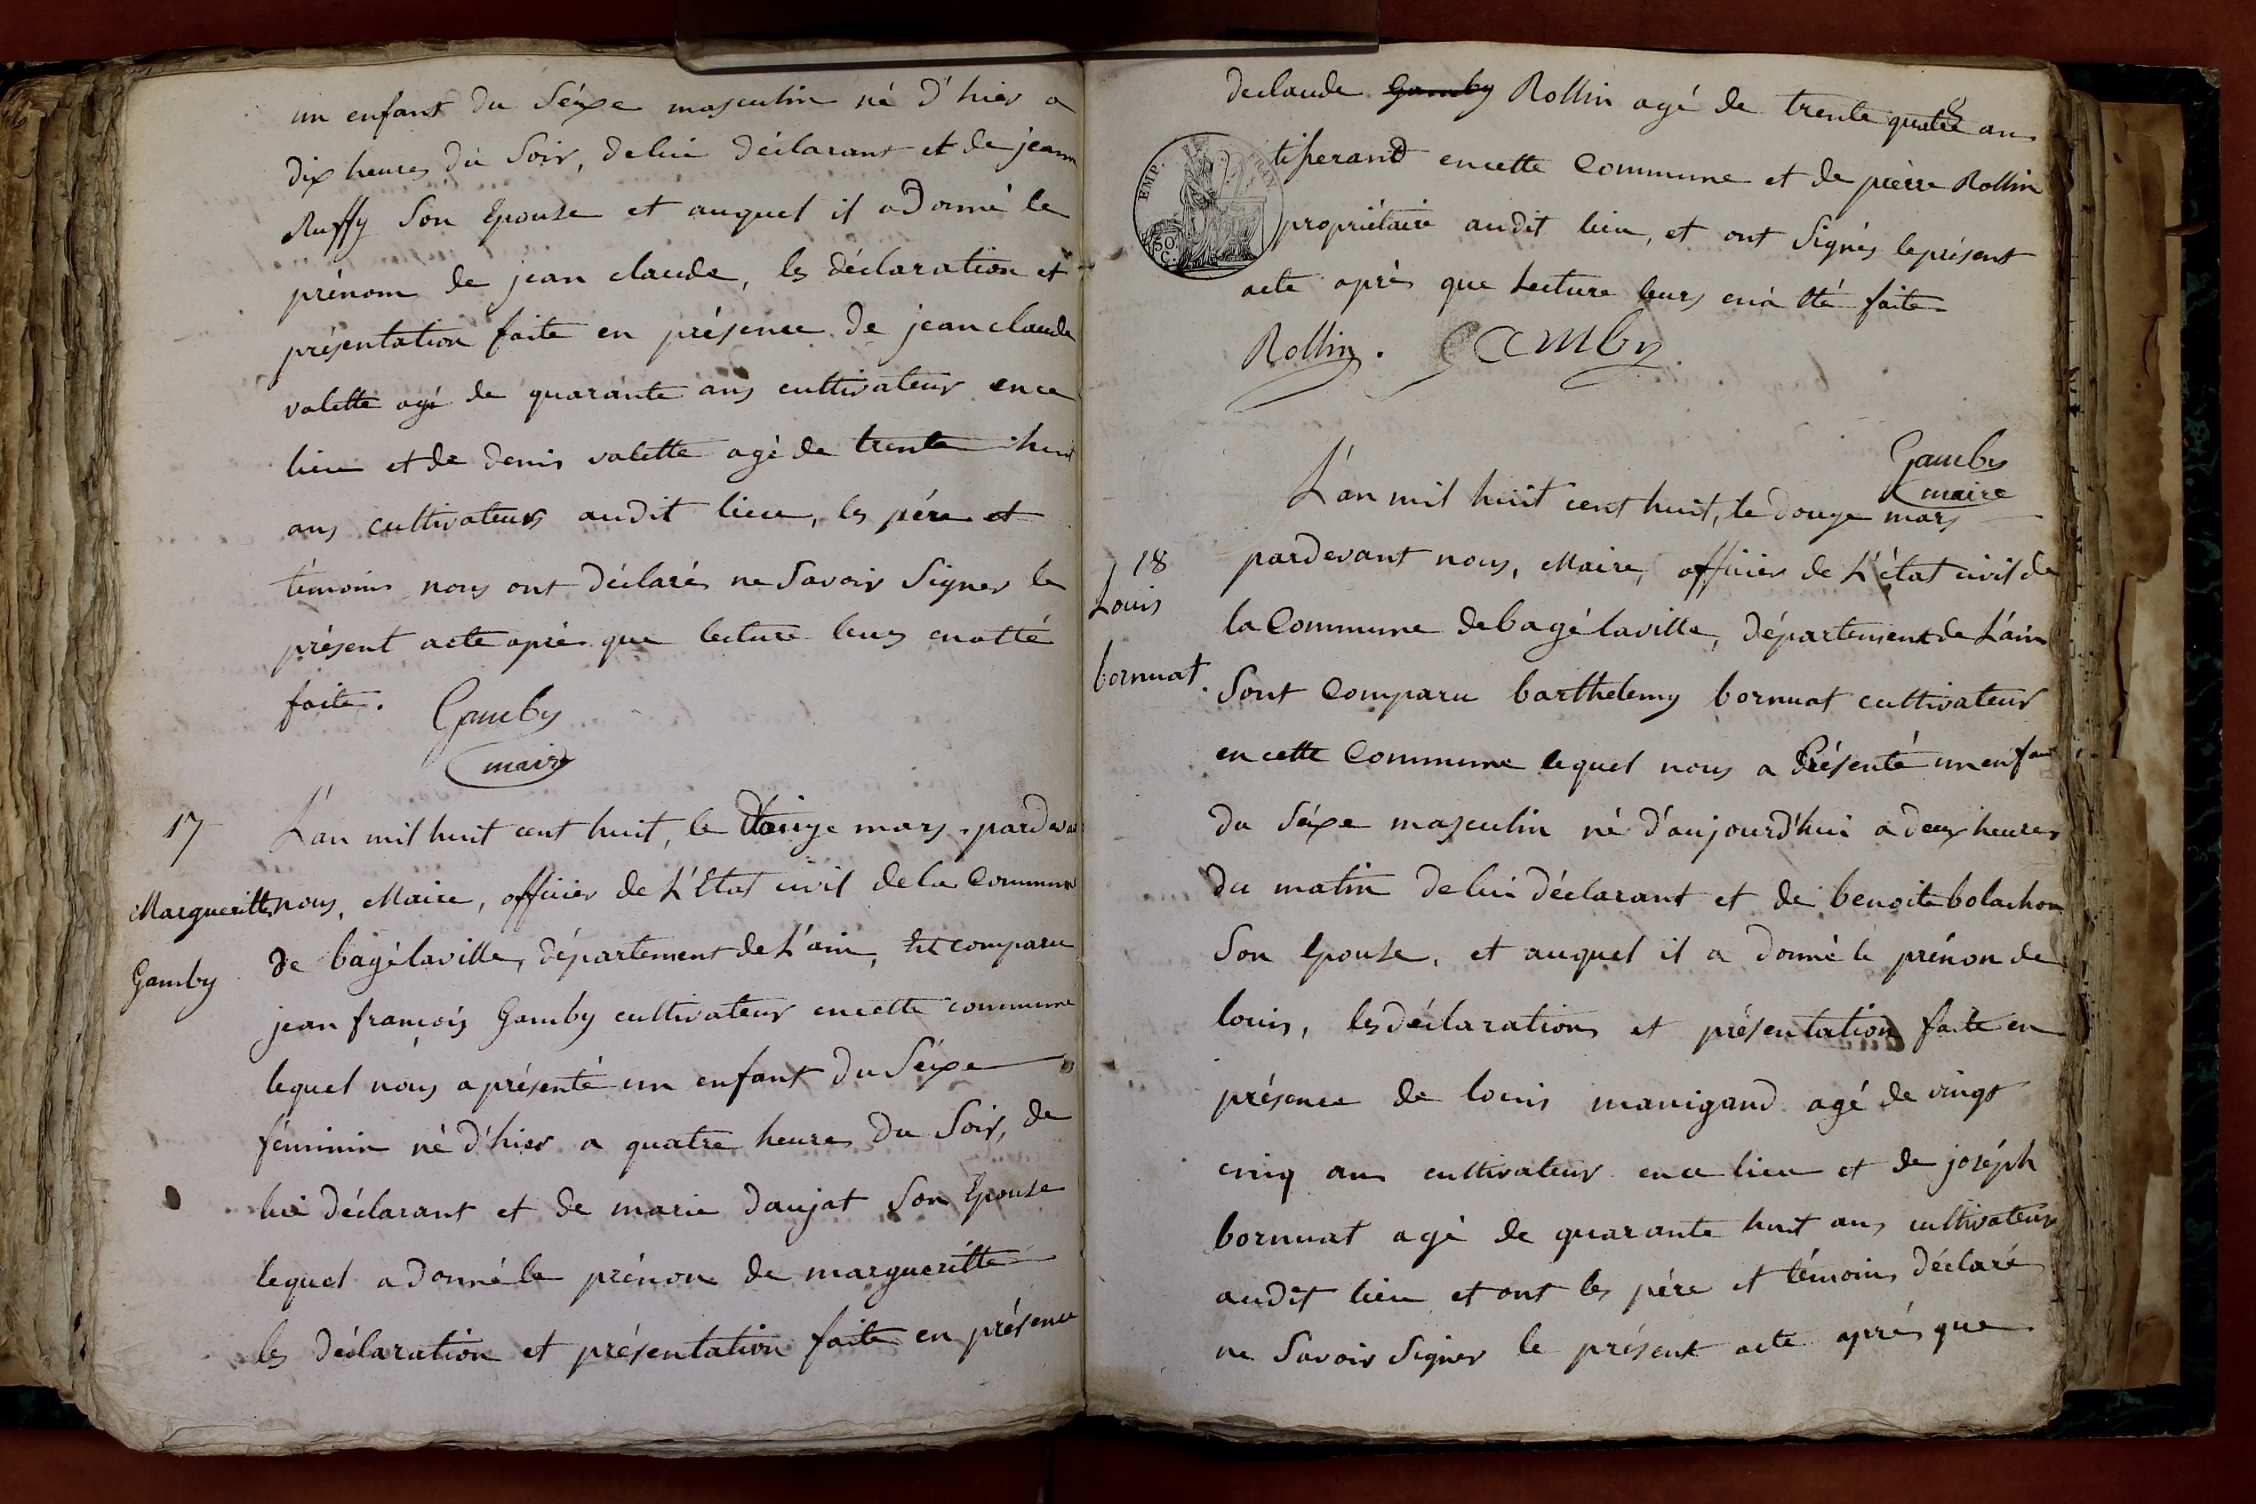 un enfant du Séxe masculin né d'hier a
dix heures du Soir, de lui déclarant et de jeanne
Ruffy Son Epouse et auquel il a Donné le
prénom de jean claude, les déclaration et
présentation faite en présence de jean claude
valette agé de quarante ans cultivateur en ce
lieu et de denis valette agé de trente huit
ans cultivateurs audit lieu, les pére et
témoins nous ont déclarés ne Savoir Signer le
présent acte aprés que lecture leurs en a été
faite.
Gamby
maire
17
Margueritte
Gamby
L'an mil huit cent huit, le mars pardevant
nous, Maire, officier de L'Etat civil de la Commune
de bagé laville, département de L'ain, Est comparu
jean françois Gamby cultivateur en cette commune
lequel nous a présenté un enfant du Séxe
féminin né d'hier a quatre heures du Soir, de
lui déclarant et de marie daujat Son Epouse
lequel a donné le prénom de margueritte
les déclaration et présentation faite en présence
de claude Gamby Rollin agé de trente quatre ans
tiserand en cette Commune et de pierre Rollin
propriétaire audit lieu, et ont Signés le présent
acte aprés que Lecture leurs en a été faite
EMP.
50
C.
Rollin. Gamby
Gamby
maire
18
Louis
bornuat.
L'an mil huit cent huit, le douze mars
pardevant nous, Maire, officier de L'état civil de
la Commune de bagé laville, département de L'ain
Sont Comparu barthelemy bornuat cultivateur
en cette Commune lequel nous a Présenté un enfant
du Séxe masculin né d'aujourd'hui a deux heures
du matin de lui déclarant et de benoite bolachon
Son Epouse, et auquel il a donné le prénon de
louis, les déclarations et présentation faite en
présence de louis manigand agé de vingt
cinq ans cultivateur en ce lieu et de joséph
bornuat agé de quarante huit ans cultivateur
audit lieu et ont les pére et témoins déclaré
ne Savoir Signer le présent acte aprés que